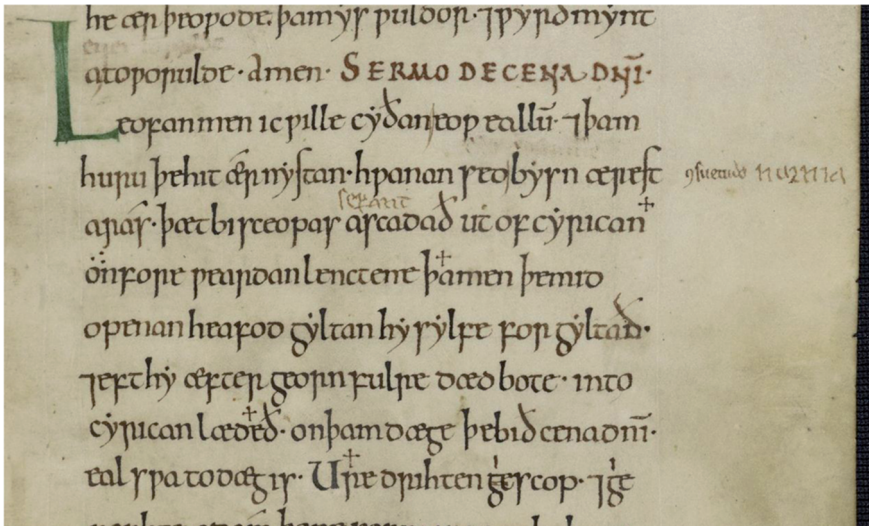 he ær þeoƿode. þam ys ƿuldor. ⁊ ƿyrðmynt
a to ƿorulde · Amen · SERMO DE CENA DNI̅·
Leofan men ic ƿille cyðan eoƿ eallū · ⁊ þam
huru þe hit ær nystan · hƿanan seo bysn ærest ꝯsuetudo
aras · þæt bisceopas ascadað ut of cyrican
on foreƿeardan lenctene þa men þe mid
openan heafod gyltan hy sylfe forgyltað·
⁊ eft hy æfter geornfulre dædbote · into
cyrican lædeð · on þam dæge þe bið cena dni̅·
eal sƿa to dæg is · Ure drihten gescop · ⁊ ge